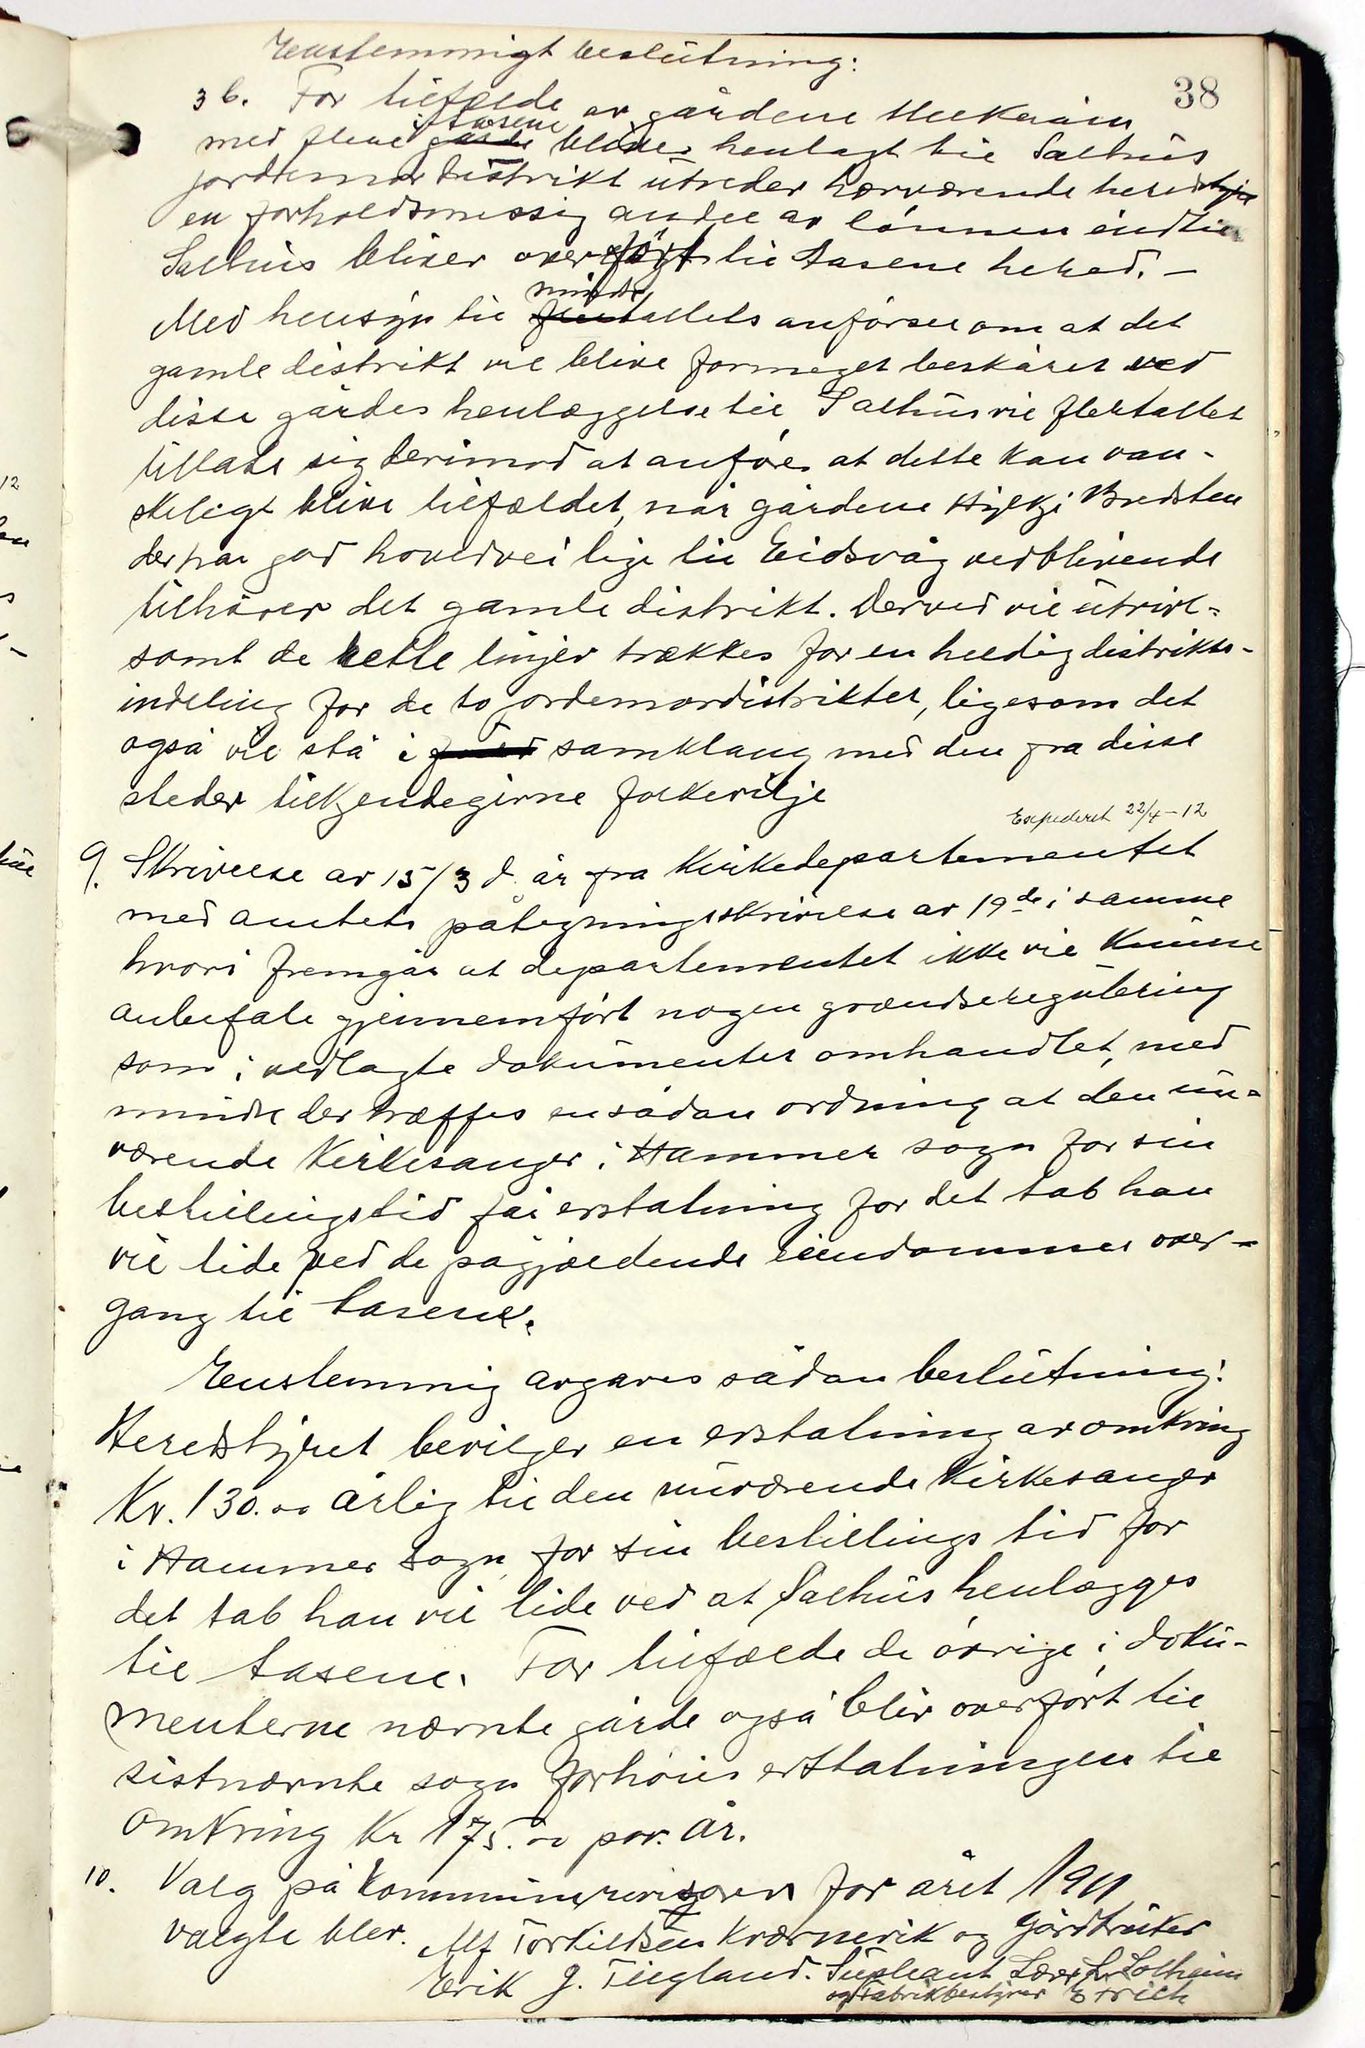 Eenstemmigt beslutning:
38
3 b. For tilfælde av gårdene Mellkeråen
i Åsene
med flere gårde bliver henlagt til Salhus
jordemordistrikt utreder hærværende heredstyre
en forholdsmessig andel av lönnen indtil
Salhus bliver overfört til Åsene hered. –
minde
Med hensyn til flertallets anförsel om at det
gamle distrikt vil blive formeget beskåret ved
disse gårdes henlæggelse til Salhus vil flertallet
tillade sig derimod at anföre at dette kan van-
skeligt blive tilfældet, når gårdene Hylkje Bredsten
der har god hovedvei lige til Eidsvåg vedblivende
tilhörer det gamle distrikt. Derved vil utvivl-
somt de rette linjer trækkes for en heldig distrikts-
indeling for de to jordemordistrikter, ligesom det
også vil stå i samklang med den fra disse
steder tilkjendegivne folkevilje
Expederet 22/4 – 12
9. Skrivelse av 15/3 d. år fra Kirkedepartementet
med amtets påtegningsskrivelse av 19de i samme
hvori fremgår at departementet ikke vil kunne
anbefale gjennemfört nogen grændseregulering
som i vedlagte dokumenter omhandlet, med
mindre der træffes en sådan ordning at den nu-
værende Kirkesanger i Hammer sogn for sin
bestillingstid får erstatning for det tab han
vil lide ved de pågjældende eiendommes over-
gang til Åsene.
Eenstemmig avgaves sådan beslutning:
Heredstyret bevilger en erstatning av omkring
Kr. 130.00 årlig til den nuværende Kirkesanger
i Hammer sogn for sin bestillings tid for
det tab han vil lide ved at Salhus henlægges
til Åsene. For tilfælde de övrige i doku-
menterne nævnte gårde også blir overfört til
sistnævnte sogn forhöies erstatningen til
omkring Kr 175.00 pr. år.
10. Valg på kommunerevisorer for året 1911
valgte blev. Alf Torkildsen Kværnevik og Gårdbruker
Erik J. Tiegland. Supleant Lærer L. Solheim
og Fabrikbestyrer E Frich